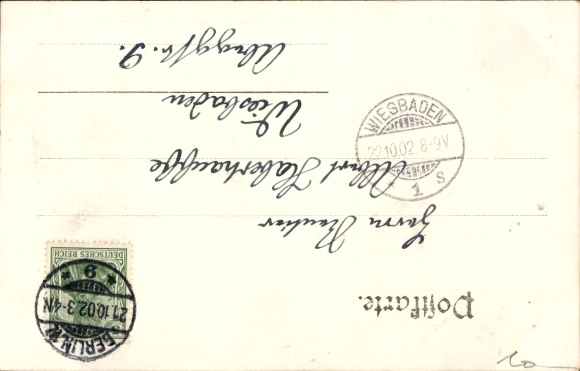 Postkarte.
Herrn Rentier
Albert
Wiesbaden
9.
WIESBADEN
22.10.02. 8-9V
1 S
DEUTSCHES REICH
BERLIN W
21.10.02. 3-4N
* 9 *
10